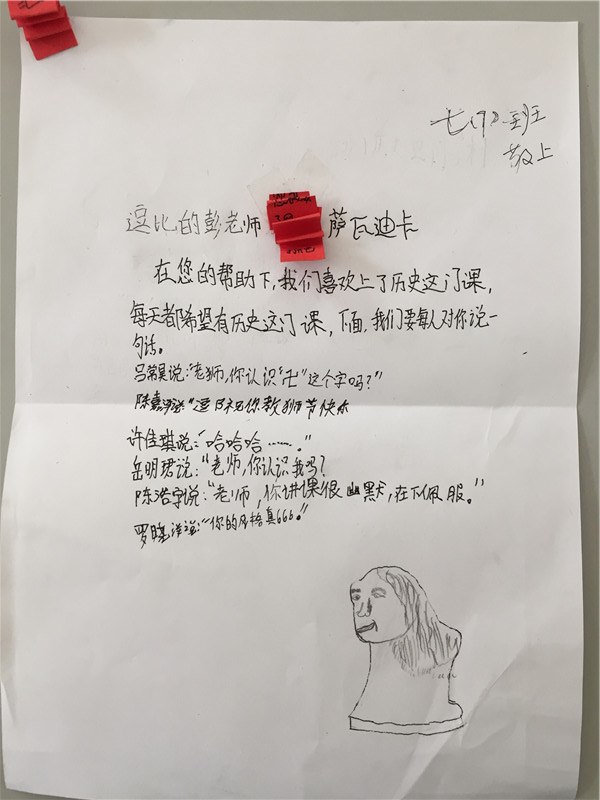 七(9)班
敬上
逗比的彭老师 萨瓦迪卡
在您的帮助下,我们喜欢上了历史这门课,
每天都希望有历史这门课,下面,我们要每人对你说一
句话。
吕常昊说:"老师,你认识"卍"这个字吗?"
说:"逗比祝你教师节快乐
许佳琪说:"哈哈哈……。"
岳明珺说:"老师,你认识我吗?
陈浩宇说:"老师,你讲课很幽默,在下佩服。"
罗晓洋说:"你的风格真666。"